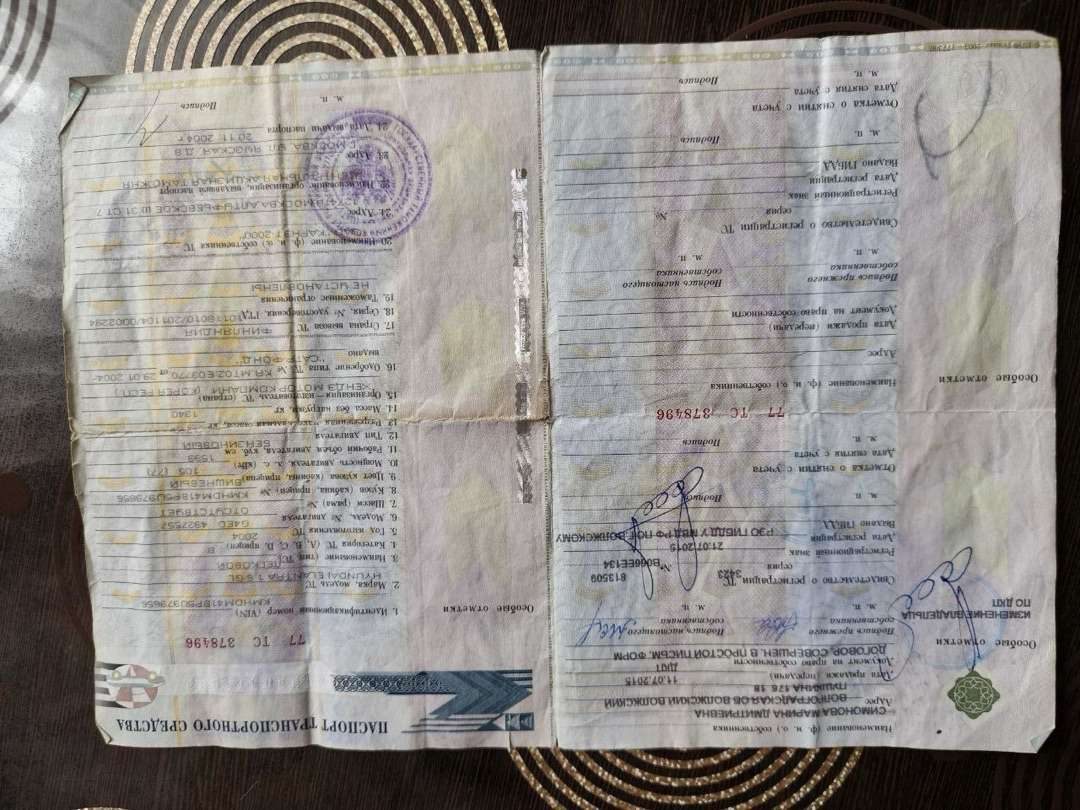 ПАСПОРТ ТРАНСПОРТНОГО СРЕДСТВА
77 ТС 378496
1. Идентификационный номер (VIN) KMHDM41BP5U979656
2. Марка, модель ТС HYUNDAI ELANTRA 1.6 GL
3. Наименование (тип ТС) ЛЕГКОВОЙ
4. Категория ТС (А, В, С, D, прицеп) B
5. Год изготовления ТС 2004
6. Модель, № двигателя G4ED 4922557
7. Шасси (рама) № ОТСУТСТВУЕТ
8. Кузов (кабина, прицеп) № KMHDM41BP5U979656
9. Цвет кузова (кабины, прицепа) ВИШНЕВЫЙ
10. Мощность двигателя, л. с. (кВт) 105 (77)
11. Рабочий объем двигателя, куб. см 1599
12. Тип двигателя БЕНЗИНОВЫЙ
13. Разрешенная максимальная масса, кг
14. Масса без нагрузки, кг 1340
15. Организация–изготовитель ТС (страна)
ХЕНДЭ МОТОР КОМПАНИ (КОРЕЯ РЕСП.)
16. Одобрение типа ТС № KR.MT02.E03770 от 29.01.2004г
выдано "САТР-ФОНД"
17. Страна вывоза ТС ФИНЛЯНДИЯ
18. Серия, № удостоверения, ГТД
19. Таможенные ограничения
НЕ УСТАНОВЛЕНЫ
20. Наименование (ф. и. о.) собственника ТС
21. Адрес 127410 МОСКВА АЛТУФЬЕВСКОЕ Ш.31.СТ.7
22. Наименование организации, выдавшей паспорт
ЦЕНТРАЛЬНАЯ АКЦИЗНАЯ ТАМОЖНЯ
23. Адрес Г.МОСКВА УЛ. ЯУЗСКАЯ Д.8
24. Дата выдачи паспорта 20.11.2004 г
М. П. Подпись
Особые отметки
Наименование (ф. и. о.) собственника
СИМОНОВА МАРИНА ДМИТРИЕВНА
Адрес ВОЛГОГРАДСКАЯ ОБ ВОЛЖСКИЙ ВОЛЖСКИЙ
ПУШКИНА 176, 18
Дата продажи (передачи) 11.07.2015
Документ на право собственности ДКП
ДОГОВОР, СОВЕРШЕН. В ПРОСТОЙ ПИСЬМ. ФОРМ
Подпись прежнего собственника
Подпись настоящего собственника
М. П.
Свидетельство о регистрации ТС
серия 3423 № 813509
Регистрационный знак В066ЕЕ134
Дата регистрации 21.07.2015
Выдано ГИБДД РЭО ГИБДД У МВД РФ ПО Г. ВОЛЖСКОМУ
М. П. Подпись
Отметка о снятии с учета
Дата снятия с учета
М. П. Подпись
Особые отметки
ИЗМЕНЕНИЕ ВЛАДЕЛЬЦА
ПО ДКП
77 ТС 378496
Наименование (ф. и. о.) собственника
Адрес
Дата продажи (передачи)
Документ на право собственности
Подпись прежнего собственника
Подпись настоящего собственника
М. П.
Свидетельство о регистрации ТС
серия №
Регистрационный знак
Дата регистрации
Выдано ГИБДД
М. П. Подпись
Отметка о снятии с учета
Дата снятия с учета
М. П. Подпись
Особые отметки